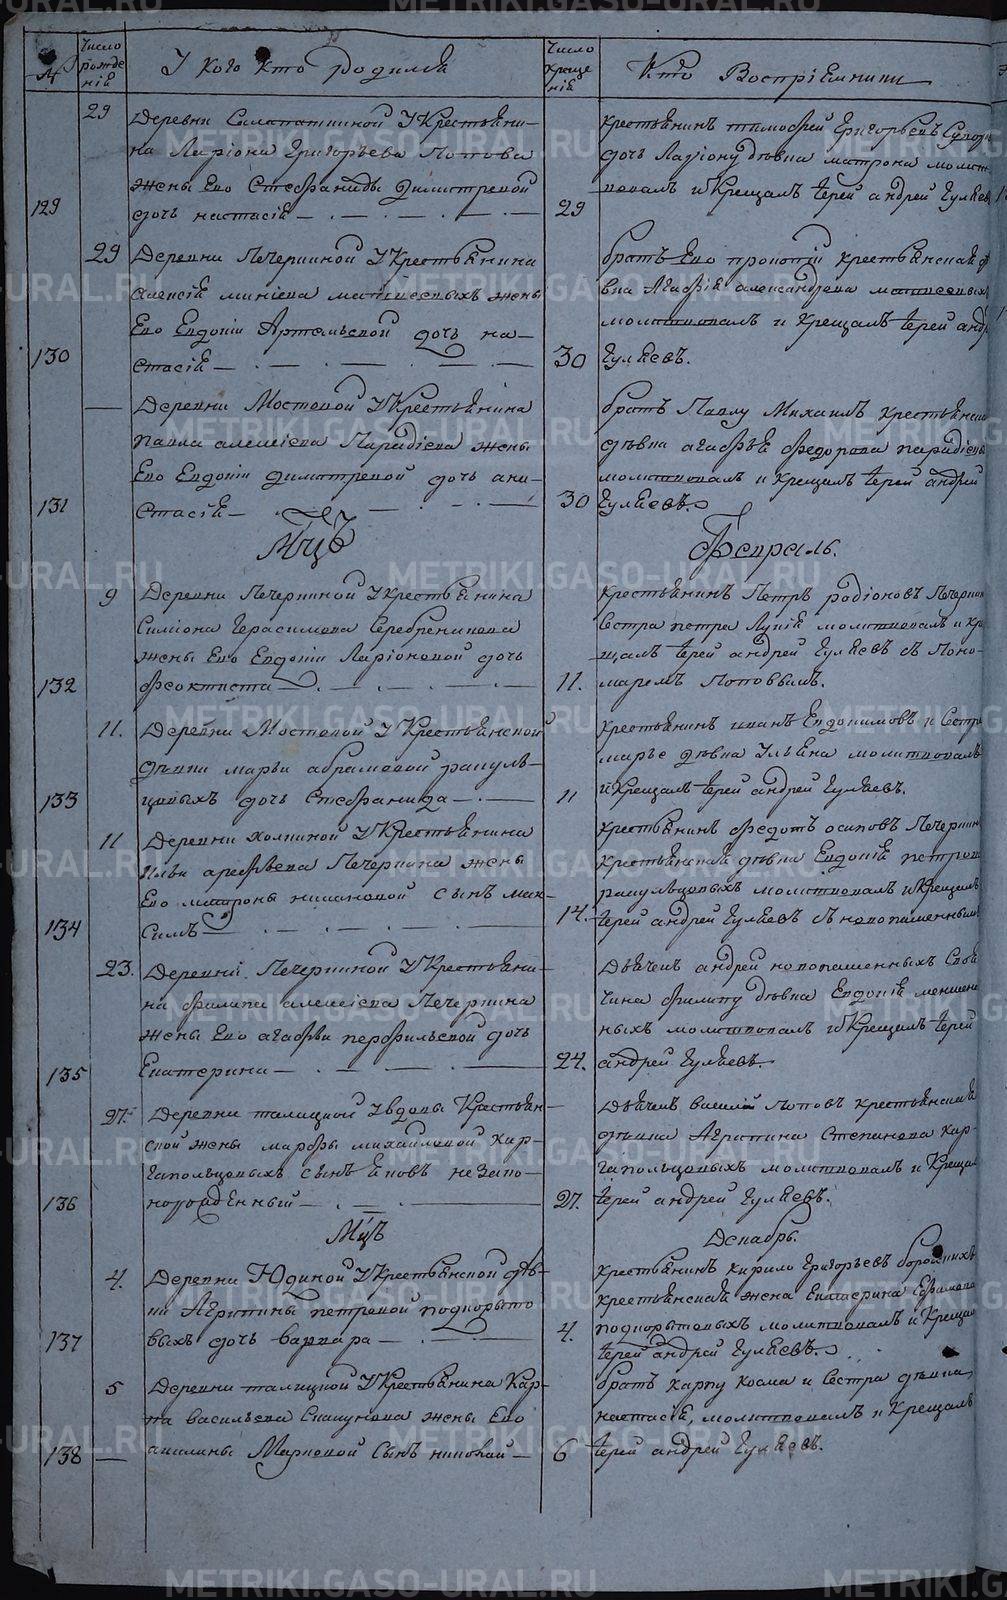 № Число рожденія У кого кто родился Число крещенія Кто Восприемники
29 Деревни Салопаткиной У Крестьяни-
на Ларіона Григорьева Попова
жены Его Стефаниды Димитревой
129 дочь настасія
крестьянинъ тимофей Григорьевъ
дочь Ларіону дѣвка матрона молит-
вовалъ и Крещалъ Іерей андрей Гуляевъ
29
29 Деревни Печеркиной У Крестьянина
Алексія минѣева матвеевыхъ жены
Его Евдокіи Артемьевой дочь на-
130 стасія
братъ Его прокопій крестьянская дѣ
вка Агафія александрова матвеевыхъ
молитвовалъ и Крещалъ Іерей андр
30 Гуляевъ.
Деревни Мостовой У Крестьянина
павла алексіева Парадіева жены
Его Евдокіи Димитревой дочь ана-
131 стасія
братъ Павлу Михаилъ крестьянская
дѣвка агафья федорова парадіевы
молитвовалъ и крещалъ Іерей андрей
30 Гуляевъ.
Мцъ Февраль.
9 Деревни Печеркиной У крестьянина
Симіона Герасимова Серебреникова
жены Его Евдокіи Ларіоновой дочь
132 феоктиста
крестьянинъ Петръ родіоновъ Печеркин
Сестра петра Лукія молитвовалъ и кре
щалъ Іерей андрей Гуляевъ съ Поно-
11. маремъ Поповымъ.
11. Деревни Мостовой У Крестьянской
дѣвки марьи абрамовой рагуль-
133 цовыхъ дочь Стефанида
крестьянинъ иванъ Евдокимовъ и Сестра
марье дѣвка Ульяна молитвовалъ
11 и Крещалъ Іерей андрей Гуляевъ.
11 Деревни холкиной У Крестьянина
Ильи арефьева Печеркина жены
Его матроны никоновой сынъ мак-
134 симъ
крестьянинъ федотъ осиповъ Печеркин
Крестьянская дѣвка Евдокія петрова
рагульцовыхъ молитвовалъ и Крещалъ
14. Іерей андрей Гуляевъ съ новопашеннымъ
23. Деревни Печеркиной У Крестьяни-
на филипа алексіева Печеркина
жены Его агафьи перфильевой дочь
135 Екатерина
Дьячекъ андрей новопашенныхъ
филипу дѣвка Евдокія
ныхъ молитвовалъ и Крещалъ Іерей
24. андрей Гуляевъ.
27. Деревни талицкой У вдовы Крестьян-
ской жены марфы михайловой Кар-
гапольцовыхъ сынъ Іяковъ незако-
136 норожденный
Дьячекъ василей Поповъ крестьянская
дѣвка Агрипина Степанова кар-
гапольцовыхъ молитвовалъ и Крещал
27. Іерей андрей Гуляевъ.
Мцъ Декабрь.
4. Деревни Юдиной У крестьянской дѣв-
ки Агрипины петровой подкорыто
137 выхъ дочь варвара
крестьянинъ кирило Григорьевъ
крестьянская жена Екатерина Ефимова
4. подкорытовыхъ молитвовалъ и Крещал
Іерей андрей Гуляевъ.
5 Деревни талицкой У Крестьянина Кар-
па васильева жены Его
138 акилины Марковой Сынъ николай
братъ карпу косма и Сестра дѣвка
настасія, молитвовалъ и Крещалъ
6 Іерей андрей Гуляевъ.
METRIKI.GASO-URAL.RU